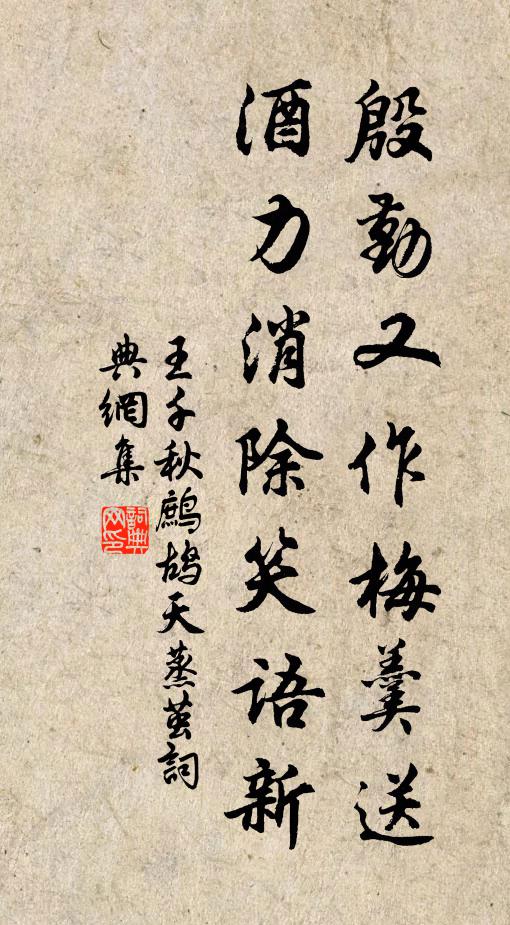 殷勤又作梅羹送
酒力消除笑語新
王千秋鷓鴣天蒸茧詞
典網集
詞典
网印